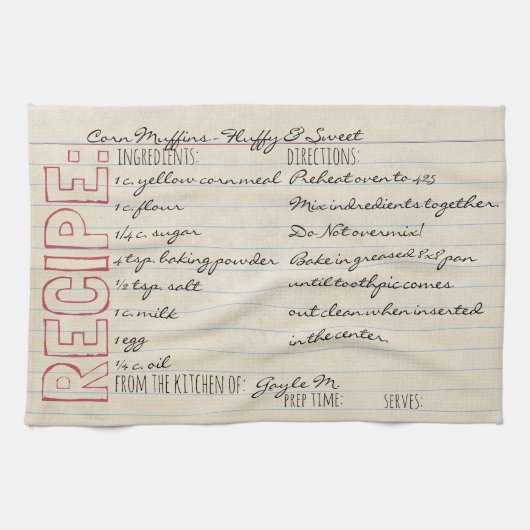 RECIPE:
Corn Muffins - Fluffy & Sweet
INGREDIENTS:
1 c. yellow cornmeal
1 c. flour
1/4 c. sugar
4 tsp. baking powder
1/2 tsp. salt
1 c. milk
1 egg
1/4 c. oil
DIRECTIONS:
Preheat oven to 425
Mix indredients together.
Do Not overmix!
Bake in greased 8x8 pan
until toothpic comes
out clean when inserted
in the center.
FROM THE KITCHEN OF: Gayle M.
PREP TIME: SERVES: